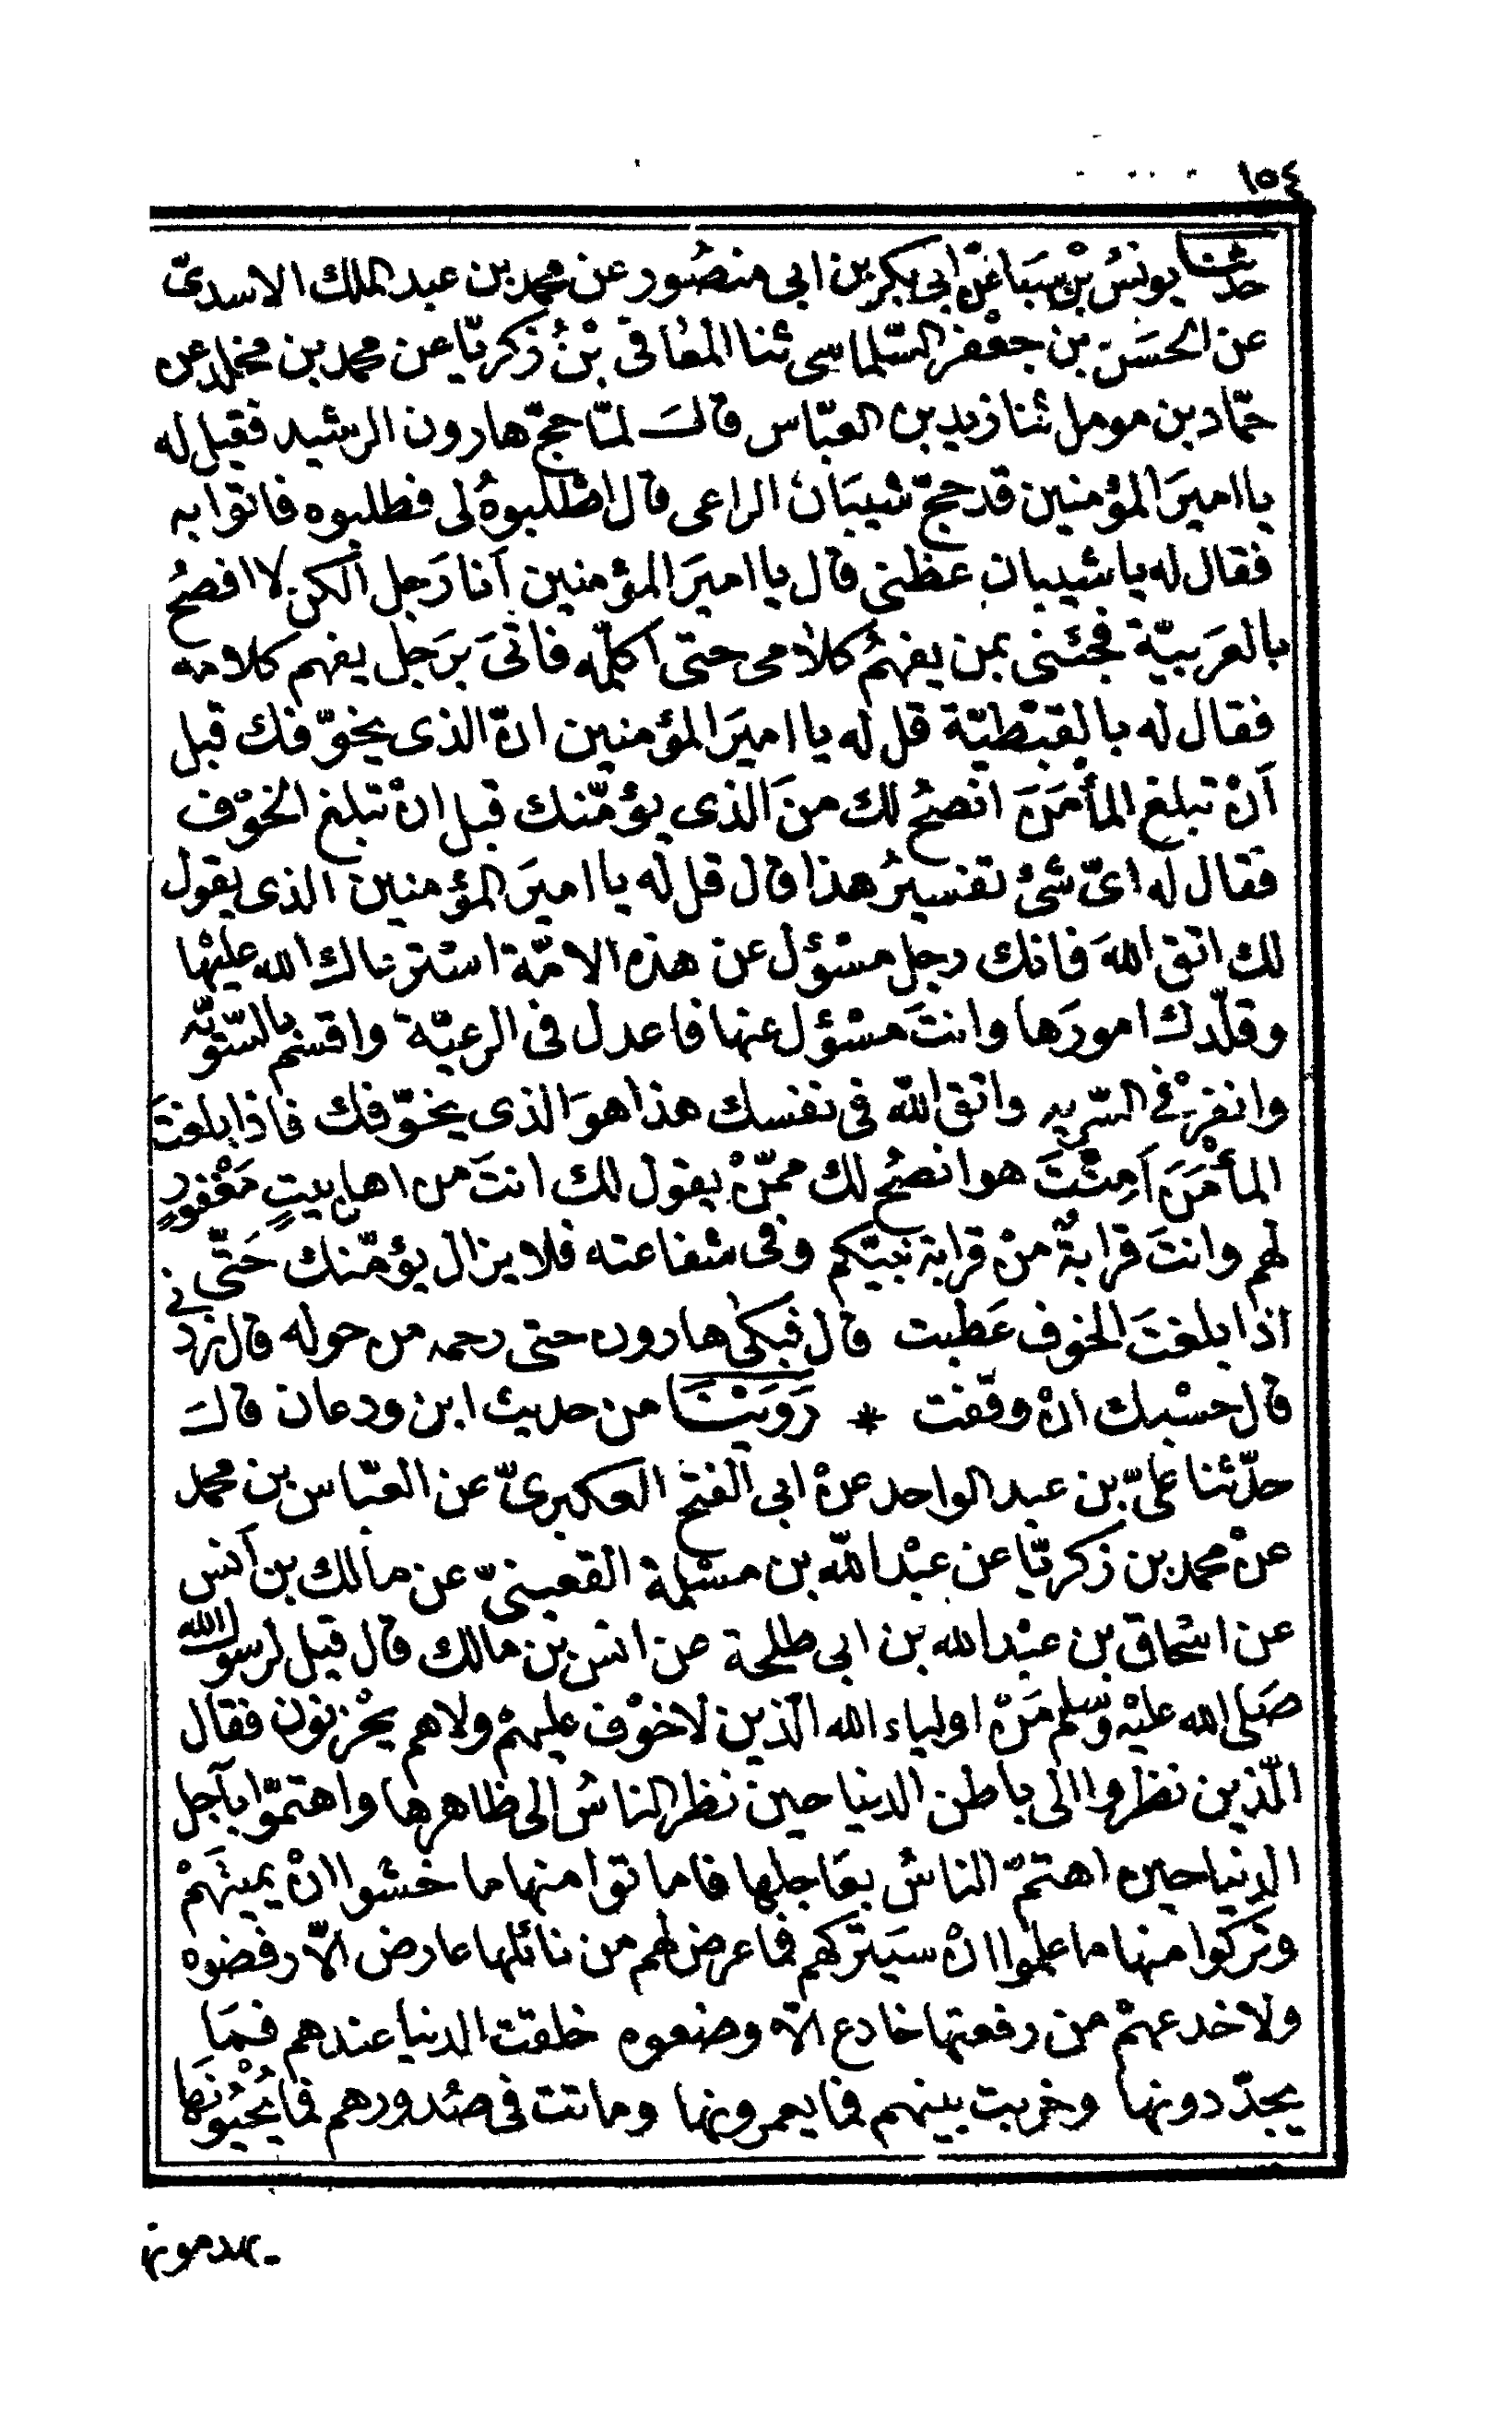 ١٥٤
حدثنا يونس بن سبا عن ابي بكر بن ابي منصُور عن محمد بن عبد الملك الاسدىّ
عن الحسَن بن جعفر السّلماسى ثنا المعُافى بْنُ زكريّا عن محمد بن مخلد عن
حمّاد بن مومل ثنا زيد بن العبّاس قال لمّا حجّ هارون الرشيد فقيل له
يا اميرَ المؤمنين قد حجّ شيبَان الراعى قال اطْلبوهُ لى فطلبوه فاتوا به
فقال له يا شيبان عظنى قال يا اميرَ المؤمنين اَنا رَجل اَلكن لا افصُح
بالعَربيّة فجئنى بمن يفهمُ كلامى حتى اكلّمه فاتىَ برَجل يفهم كلامه
فقال له بالِقبْطيّة قل له يا اميرَ المؤمنين انّ الذى يخوّفك قبل
اَنْ تبلغ المأمَنَ انصحُ لك منَ الذى يؤمّنك قبل انْ تبلغ الخوْف
فقال له اىّ شئ تفسيرُ هذا قال قل له يا اميرَ المؤمنين الذى يقول
لك اتق اللهَ فانك رجل مسْؤل عن هذه الامّة استرعاك الله عليْها
وقلّدك امورَها وانتَ مسْؤل عنها فاعدل فى الرعيّة واقسم بالسّويّه
وانفرْ فى السّريه واتق الله فى نفسك هذا هوَ الذى يخوّفك فاذا بلغتَ
المأْمَنَ اَمِنْتَ هو انصحُ لك ممّنْ يقول لك انتَ من اهل بيتٍ مَغْفورٍ
لهم وانتَ قرابةٌ منْ قرابة نبيّكم وفى شفاعته فلا يزال يؤمّنك حَتّى
اذا بلغتَ الخوف عَطبت قال فبكى هارون حتى رحمه من حوله قال زدنى
قال حسْبك انْ وقفت * رَوَيْنَا من حديث ابن ودعان قال
حدّثنا علىّ بن عبد الواحد عنْ ابى الفتح العكبرىّ عن العبّاس بن محمد
عنْ محمد بن زكريّا عن عبْد الله بن مسْلمة القعبنىّ عن مالك بن اَنس
عن اسْحاق بن عبْد الله بن ابى طلحة عن انس بن مالك قال قيل لرسول الله
صَلى الله عليْه وَسلم مَنْ اولياء الله الّذين لا خوْف عليهمْ ولا هم يحْزنون فقال
الّذين نظروا الى باطن الدنيا حين نظر الناسُ الى ظاهرها واهتمّوا بآجل
الدنيا حين اهتمّ الناسُ بعَاجلها فاماتوا منها ما خشوا انْ يميتَهمْ
وتركوا منها ما علموا انْ سيَتركهم فما عرض لهم من نائلها عارض الاّ رفضوه
ولا خدعهمْ من رفعتها خادع الاّ وضعوه خلقت الدنيا عندهم فمَا
يجدّدونها وخربت بينهم فما يعمرونها وماتت فى صُدورهم فما يُحْيُونَها